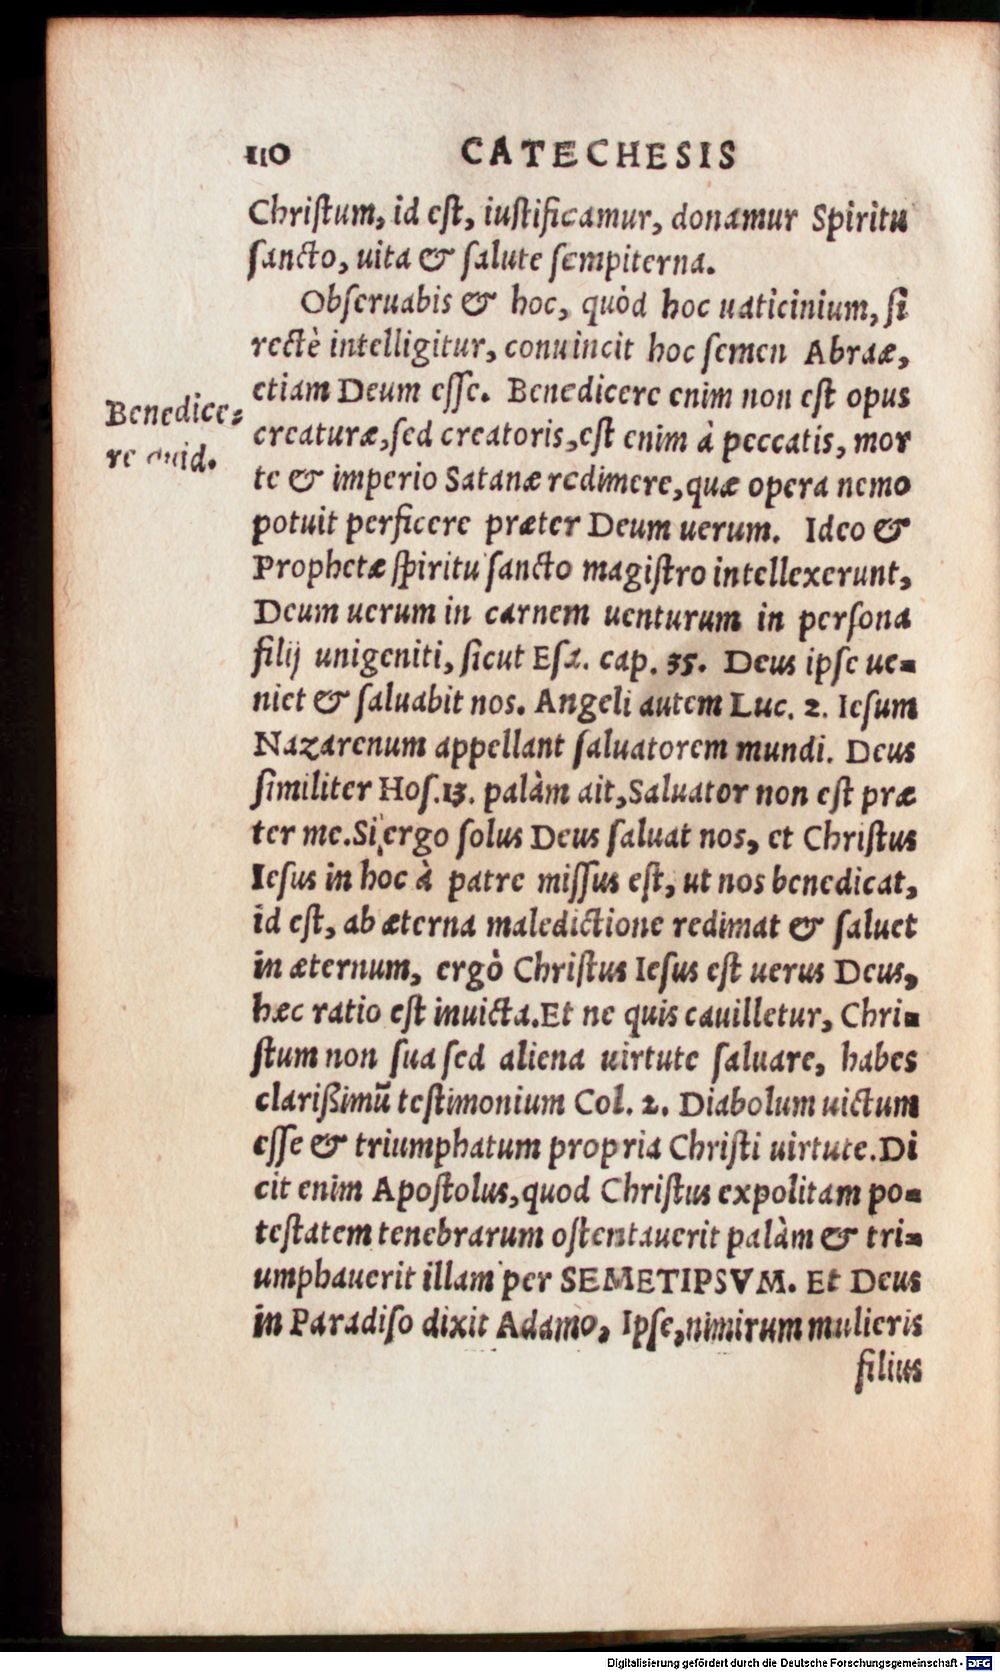 110 CATECHESIS
Chriſtum, id eſt, iuſtificamur, donamur Spiritu
ſancto, uita & ſalute ſempiterna.
Obſeruabis & hoc, quòd hoc uaticinium, ſi
rectè intelligitur, conuincit hoc ſemen Abraæ,
etiam Deum eſſe. Benedicere enim non eſt opus
Benedice-
creaturæ, ſed creatoris, eſt enim à peccatis, mor
re quid.
te & imperio Satanæ redimere, quæ opera nemo
potuit perficere præter Deum uerum. Ideo &
Prophetæ ſpiritu ſancto magiſtro intellexerunt,
Deum uerum in carnem uenturum in perſona
filij unigeniti, ſicut Eſa. cap. 35. Deus ipſe ue-
niet & ſaluabit nos. Angeli autem Luc. 2. Ieſum
Nazarenum appellant ſaluatorem mundi. Deus
ſimiliter Hoſ. 13. palàm ait, Saluator non eſt præ
ter me. Si ergo ſolus Deus ſaluat nos, et Chriſtus
Ieſus in hoc à patre miſſus eſt, ut nos benedicat,
id eſt, ab æterna maledictione redimat & ſaluet
in æternum, ergò Chriſtus Ieſus eſt uerus Deus,
hæc ratio eſt inuicta. Et ne quis cauilletur, Chri-
ſtum non ſua ſed aliena uirtute ſaluare, habes
clarißimũ teſtimonium Col. 2. Diabolum uictum
eſſe & triumphatum propria Chriſti uirtute. Di
cit enim Apoſtolus, quod Chriſtus expolitam po-
teſtatem tenebrarum oſtentauerit palàm & tri-
umphauerit illam per SEMETIPSVM. Et Deus
in Paradiſo dixit Adamo, Ipſe, nimirum mulieris
filius
Digitalisierung gefördert durch die Deutsche Forschungsgemeinschaft - DFG